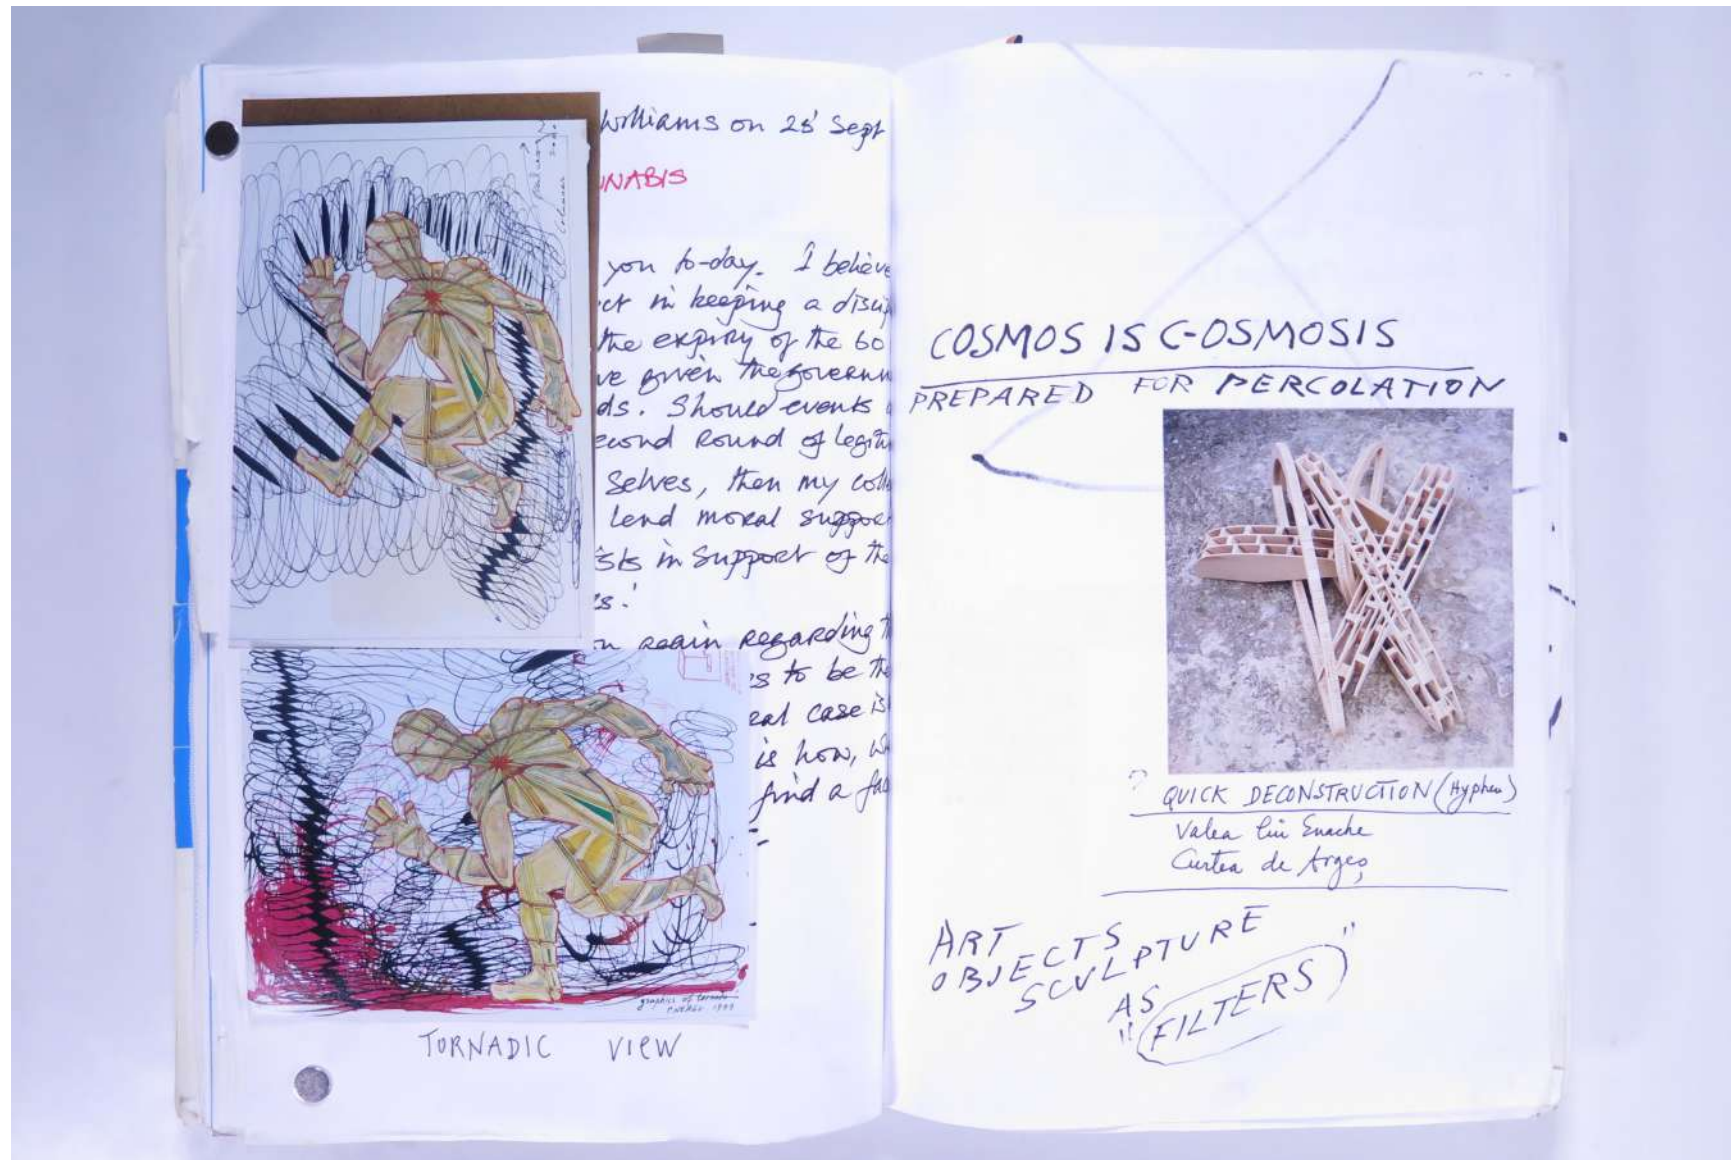 Williams on 28' Sept
NNABIS
you to-day. I believe
ct in keeping a discip
the expiry of the 60
ve given the governm
ds. Should events
econd Round of legitim
selves, then my coll
lend moral suppor
ists in support of the
es.'
on again regarding th
es to be the
eal case is
is how, wh
find a fac
graphics of tornadic
ENERGY 1999
TORNADIC VIEW
COSMOS IS C-OSMOSIS
PREPARED FOR PERCOLATION
QUICK DECONSTRUCTION (Hyphen)
Valea lui Enache
Curtea de Argeș
ART
OBJECTS
SCULPTURE
AS
"FILTERS"